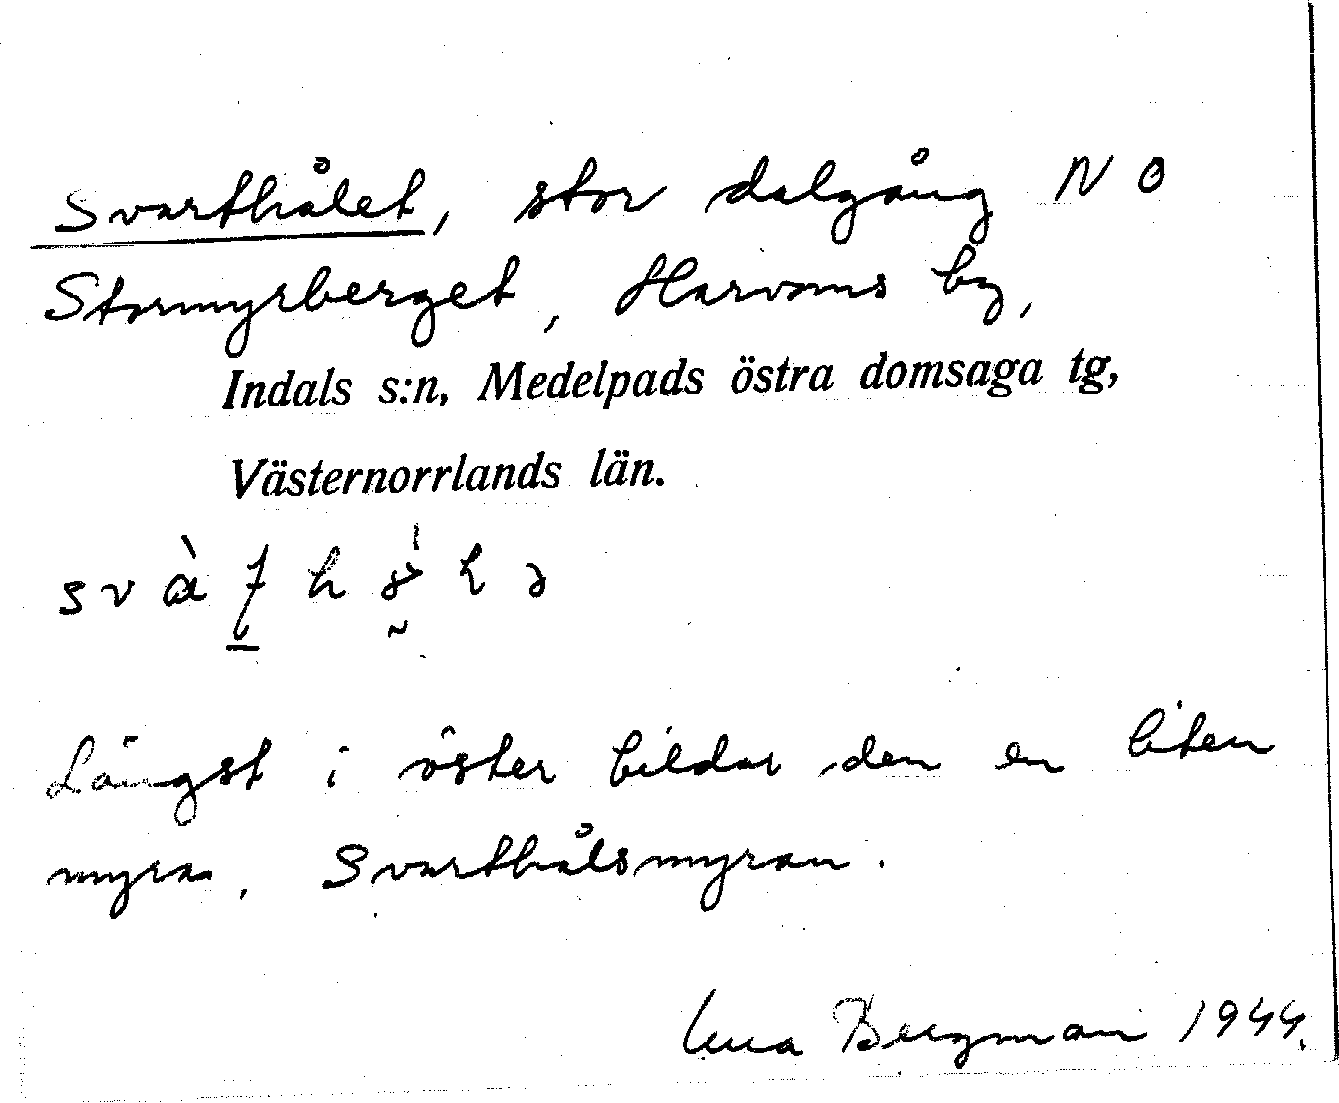 Svarthålet, stor dalgång NO
Stormyrberget, Harvoms by,
Indals s:n, Medelpads östra domsaga tg,
Västernorrlands län.
Längst i öster bildar den en liten
myra, Svarthålsmyran.
Bergman 1944.